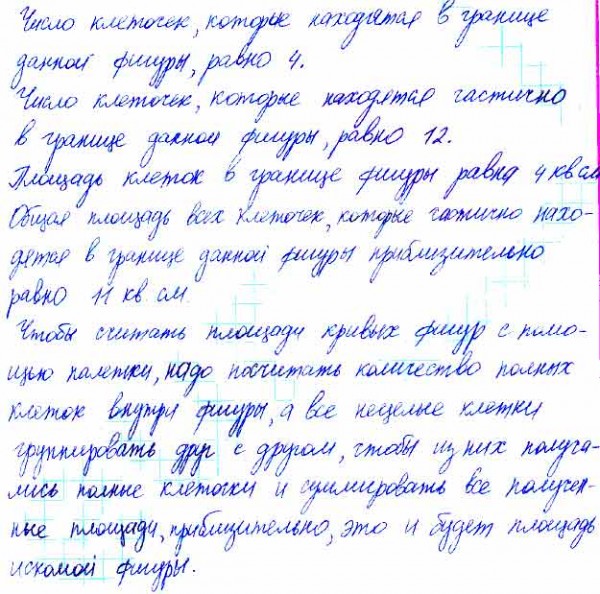 Число клеточек, которые находятся в границе
данной фигуры, равно 4.
Число клеточек, которые находятся частично
в границе данной фигуры, равно 12.
Площадь клеток в границе фигуры равна 4 кв см
Общая площадь всех клеточек, которые частично нахо-
дятся в границе данной фигуры приблизительно
равно 11 кв. см.
Чтобы считать площади кривых фигур с помо-
щью палетки, надо посчитать количество полных
клеток внутри фигуры, а все нецелые клетки
группировать друг с другом, чтобы из них получа-
лись полные клеточки и суммировать все получен-
ные площади, приблизительно, это и будет площадь
искомой фигуры.